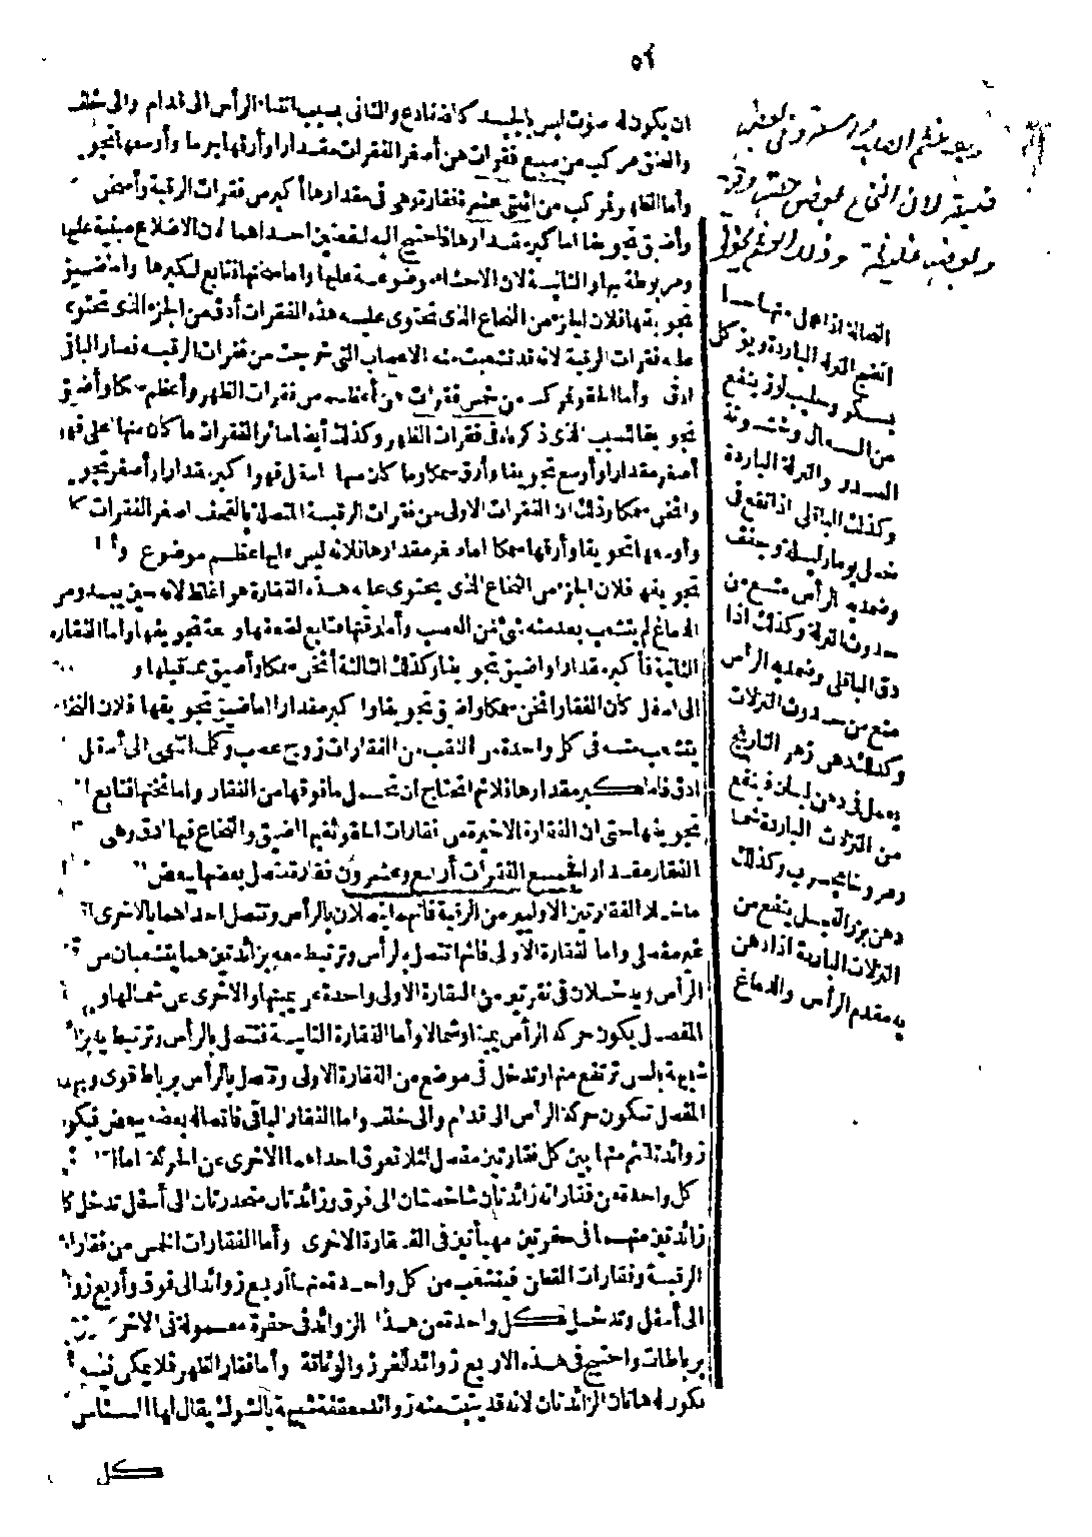 ٥٢
ان يكون له صوت ليس بالجيد كالضفادع والثانى بسبب انثناء الرأس الى قدام والى خلف
والعنق مركب من سبع فقرات هن أصغر الفقرات مقدارا وأرقها جرما وأوسعها تجو
وأما الظهر فمركب من اثنتى عشرة فقارة وهى فى مقدارها أكبر من فقرات الرقبة وأسمك
وأضيق تجويفا اما كبر مقدارها فاحتيج اليه لمنفعتين احداهما لان الاضلاع مبنية عليها
ومربوطة بها والثانية لان الاحشاء موضوعة عليها واما سمكها فتابع لكبرها واما ضيق
تجويفها فلان الجزء من النخاع الذى تحتوى عليه هذه الفقرات أدق من الجزء الذى تحتوى
عليه فقرات الرقبة لانه قد تشعبت منه الاعصاب التى خرجت من فقرات الرقبة فصار الباقى
ادق وأما الحقو فمركب من خمس فقرات هن أعظم من فقرات الظهر وأعظم سمكا وأضيق
تجويفا للسبب الذى ذكرناه فى فقرات الظهر وكذلك أيضا سائر الفقرات ما كان منها أعلى فهو
أصغر مقدارا وأوسع تجويفا وأرق سمكا وما كان منها اسفل فهو اكبر مقدارا وأصغر تجو
واثخن سمكا وذلك ان الفقرات الاولى من فقرات الرقبة المتصلة بالقحف اصغر الفقرات كا
وأوسعها تجويفا وأرقها سمكا اما صغر مقدارها فلانه ليس عليها عظم موضوع وأما
تجويفها فلان الجزء من النخاع الذى يحتوى عليه هذه الفقارة هو اغلظ لانه حين يبدو من
الدماغ لم يتشعب بعد منه شئ من العصب وأما رقتها فتابع لضعفها وسعة تجويفها واما الفقارة
الثانية فأكبر مقدارا واضيق تجويفا وكذلك الثالثة أثخن سمكا وأضيق مما قبلها و
الى اسفل كان الفقار اثخن سمكا واضيق تجويفا واكبر مقدارا اما ضيق تجويفها فلان النخا
يتشعب منه فى كل واحدة من الثقب من الفقارات زوج عصب وكلما انتهى الى أسفل
ادق فاما كبر مقدارها فلانها تحتاج ان تحمل ما فوقها من الفقار واما ثخنها فتابع
تجويفها حتى ان الفقارة الاخيرة من فقارات الحقو ثقبها اضيق والنخاع فيها ادق وهى
الفقار مقدارا فجميع الفقرات أربع وعشرون فقارة متصل بعضها ببعض
ما خلا الفقارتين الاوليين من الرقبة فانهما يتصلان بالرأس وتتصل احداهما بالاخرى
غير مفصلى واما الفقارة الاولى فانها تتصل بالرأس وترتبط معه بزائدتين هما يتشعبان من
الرأس ويدخلان فى نقرتين من الفقارة الاولى واحدة عن يمينها والاخرى عن شمالها و
المفصل يكون حركة الرأس يمينا وشمالا وأما الفقارة الثانية فتتصل بالرأس وترتبط به بزا
شبيهة بالسن ترتفع منها وتدخل فى موضع من الفقارة الاولى وتتصل بالرأس برباط قوى وبهذا
المفصل تكون حركة الرأس الى قدام والى خلف واما الفقار الباقى فاتصاله بعضه ببعض فيكون
زوائد تلتئم منها بين كل فقارتين مفصل لئلا تعوق احداهما الاخرى عن الحركة اما
كل واحدة من فقاراته زائدتان شاخصتان الى فوق وزائدتان منحدرتان الى أسفل تدخل كا
زائدتين منهما فى حفرتين مهيأتين فى الفقارة الاخرى وأما الفقارات الخمس من فقارات
الرقبة وفقارات القطن فيتشعب من كل واحدة منها أربع زوائد الى فوق وأربع زوا
الى أسفل وتدخل كل واحدة من هذا الزوائد فى حفرة معمولة فى الاخر
برباطات واحتيج فى هذه الاربع زوائد للحرز والوثاقة وأما فقار الظهر فلا يمكن فيه
يكون له هاتان الزائدتان لانه قد ينبت منه زوائد معقفة شبيهة بالشوك يقال لها السناسن
كل
النخالة اذا عمل منها حسا
انضج النزلة الباردة ويؤكل
بسكر وحليب لوز ينفع
من السعال وخشونة
الصدر والنزلة الباردة
وكذلك الباقلى اذا نقع فى
خل يوما وليلة وجفف
وضمد به الرأس منع من
حدوث النزلة وكذلك اذا
دق الباقلى وضمد به الرأس
منع من حدوث النزلات
وكذلك دهن زهر النارنج
يعمل فى دهن لبان فينفع
من النزلات الباردة شما
ومروخا مجرب وكذلك
دهن بزر الفجل ينفع من
النزلات الباردة اذا دهن
به مقدم الرأس والدماغ